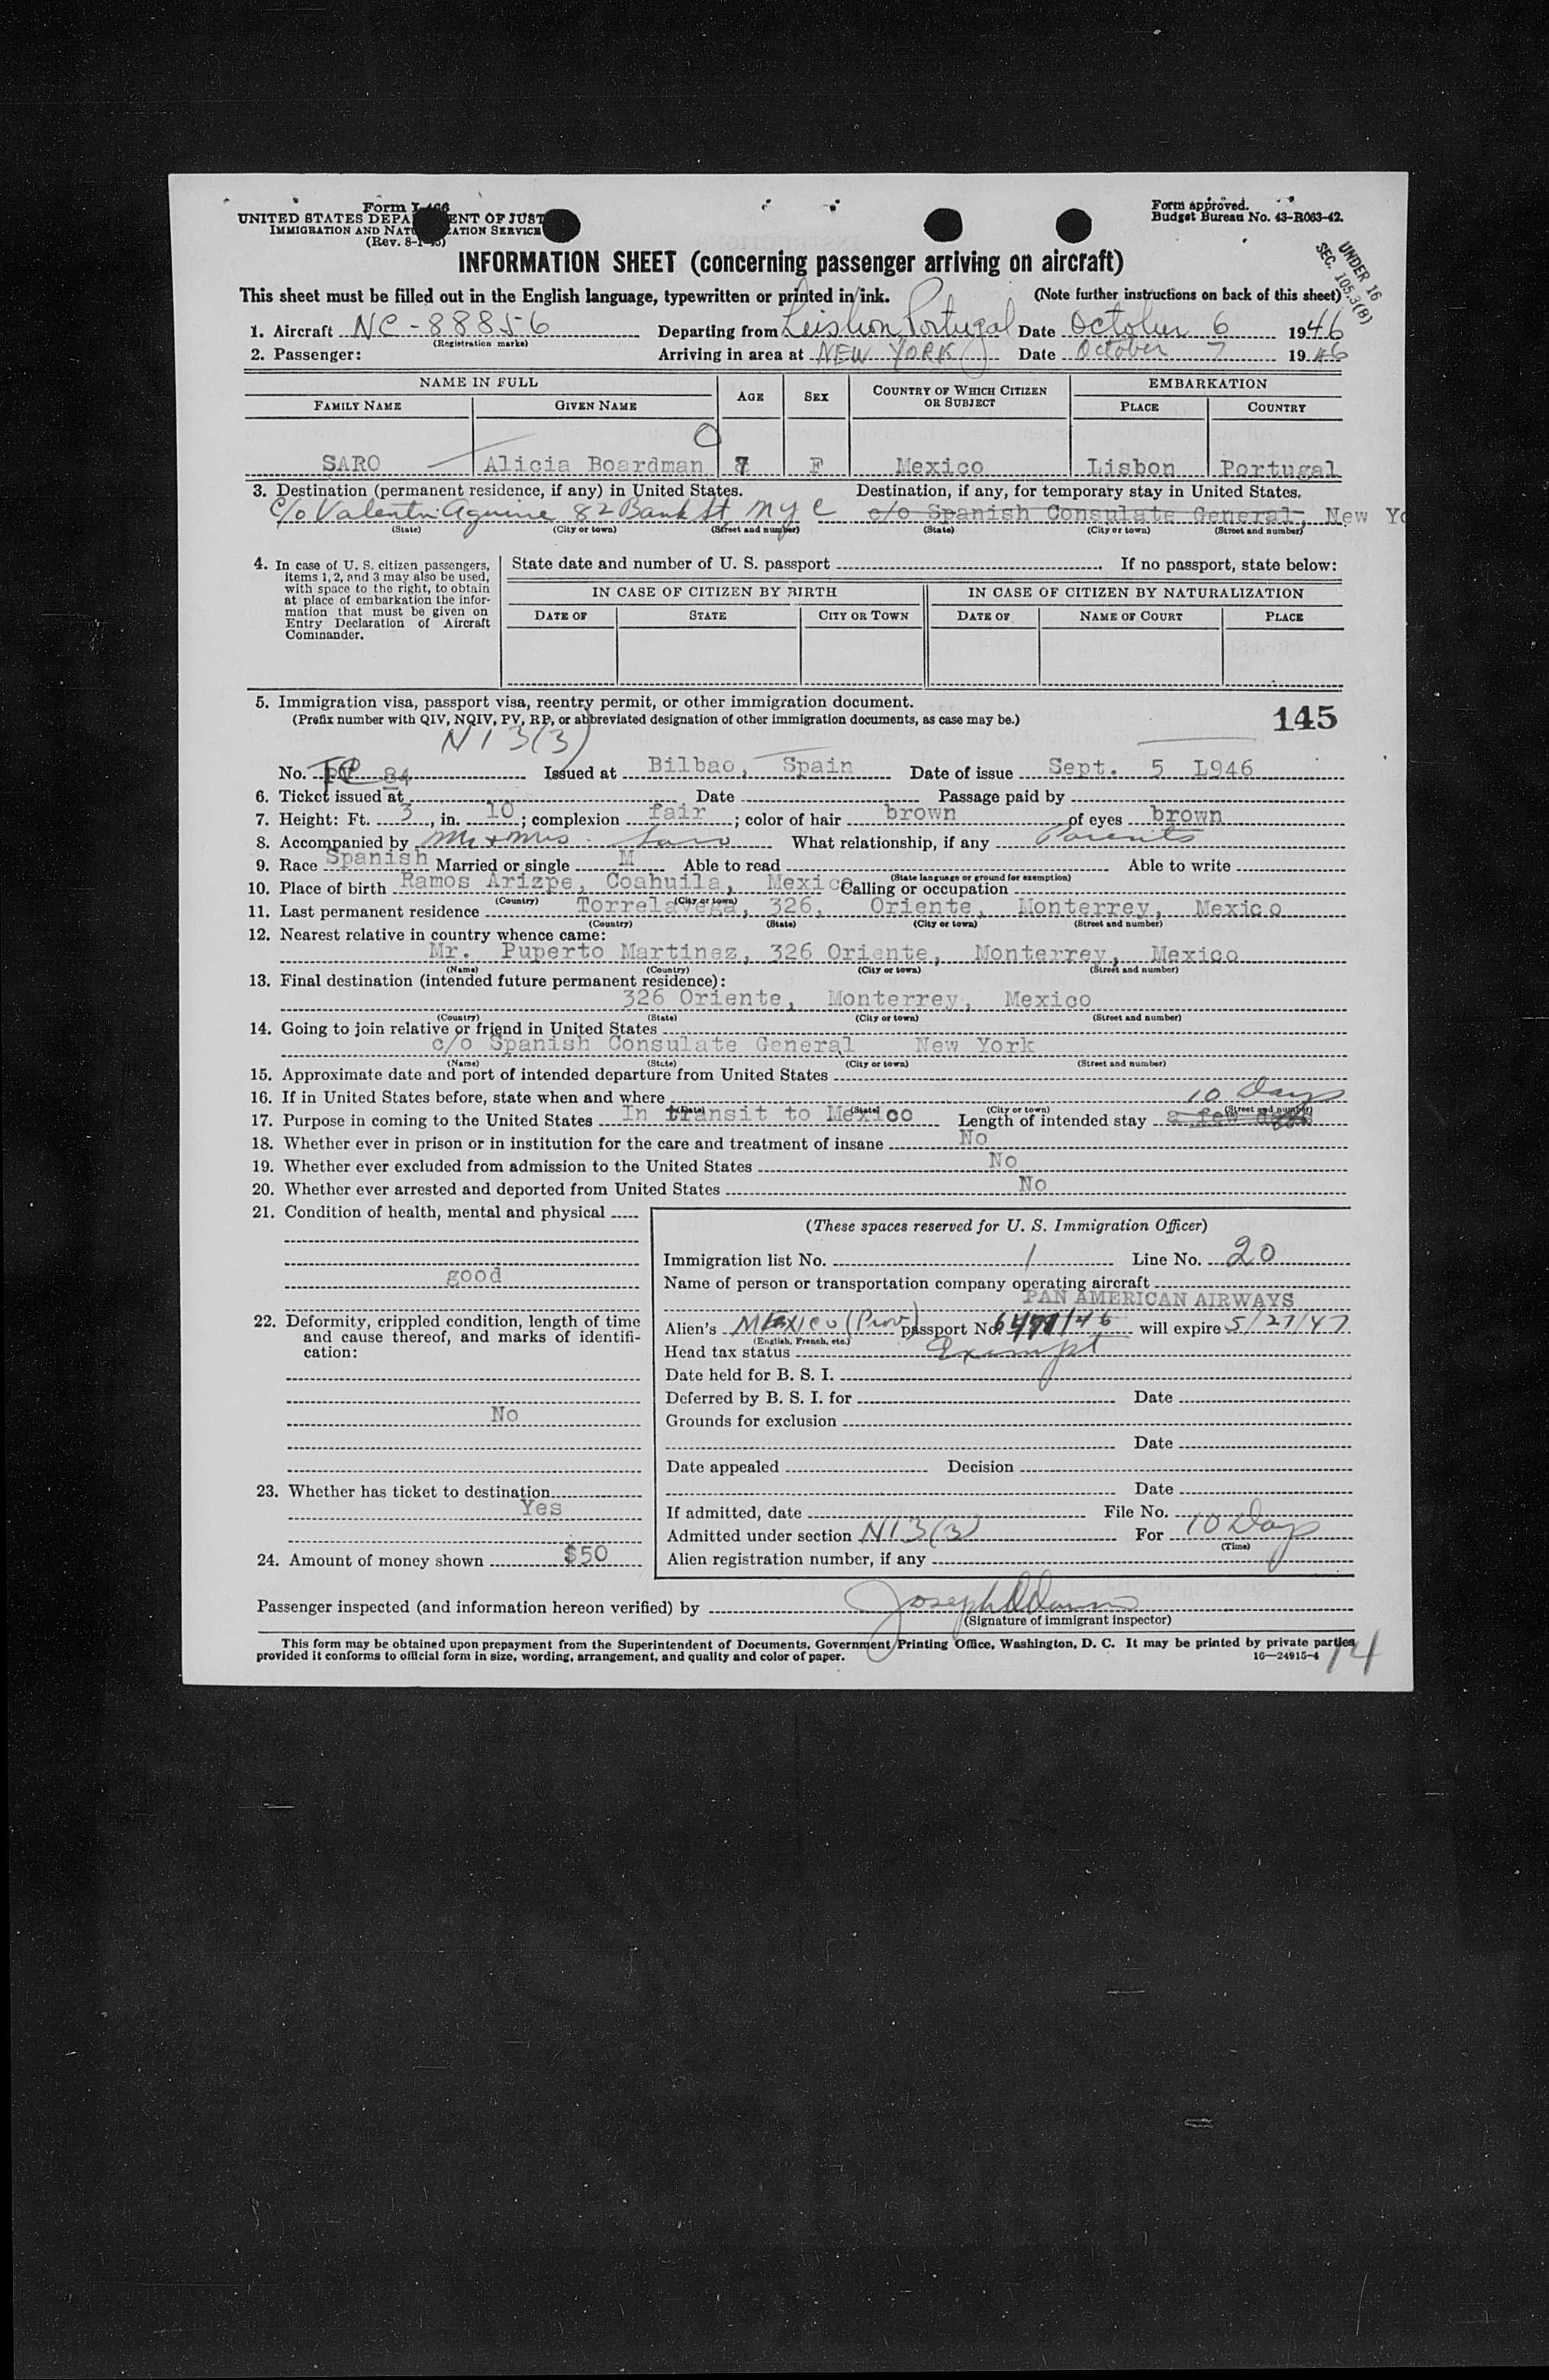 Form I-466
UNITED STATES DEPARTMENT OF JUSTICE
IMMIGRATION AND NATURALIZATION SERVICE
(Rev. 8-1-45)
Form approved.
Budget Bureau No. 43-R063-42.
UNDER 16
SEC. 105.3(B)
INFORMATION SHEET (concerning passenger arriving on aircraft)
This sheet must be filled out in the English language, typewritten or printed in ink. (Note further instructions on back of this sheet)
1. Aircraft NC-88856 Departing from Leisbon, Portugal Date October 6 1946
(Registration marks)
2. Passenger: Arriving in area at NEW YORK Date October 7 1946
NAME IN FULL AGE SEX COUNTRY OF WHICH CITIZEN OR SUBJECT EMBARKATION
FAMILY NAME GIVEN NAME PLACE COUNTRY
SARO Alicia Boardman 7 F Mexico Lisbon Portugal
3. Destination (permanent residence, if any) in United States. Destination, if any, for temporary stay in United States.
c/o Valentin Aguirre 82 Bank St NYC c/o Spanish Consulate General, New Yo
(State) (City or town) (Street and number) (State) (City or town) (Street and number)
4. In case of U. S. citizen passengers, items 1, 2, and 3 may also be used, with space to the right, to obtain at place of embarkation the information that must be given on Entry Declaration of Aircraft Commander.
State date and number of U. S. passport If no passport, state below:
IN CASE OF CITIZEN BY BIRTH IN CASE OF CITIZEN BY NATURALIZATION
DATE OF STATE CITY OR TOWN DATE OF NAME OF COURT PLACE
5. Immigration visa, passport visa, reentry permit, or other immigration document.
(Prefix number with QIV, NQIV, PV, RP, or abbreviated designation of other immigration documents, as case may be.)
145
N I 3(3)
No. TC 84 Issued at Bilbao, Spain Date of issue Sept. 5 1946
6. Ticket issued at Date Passage paid by
7. Height: Ft. 3, in. 10; complexion fair; color of hair brown of eyes brown
8. Accompanied by Mr + Mrs. Saro What relationship, if any Parents
9. Race Spanish Married or single M Able to read Able to write
(State language or ground for exemption)
10. Place of birth Ramos Arizpe, Coahuila, Mexico Calling or occupation
(Country) (City or town)
11. Last permanent residence Torrelavega, 326, Oriente, Monterrey, Mexico
(Country) (State) (City or town) (Street and number)
12. Nearest relative in country whence came:
Mr. Puperto Martinez, 326 Oriente, Monterrey, Mexico
(Name) (Country) (City or town) (Street and number)
13. Final destination (intended future permanent residence):
326 Oriente, Monterrey, Mexico
(Country) (State) (City or town) (Street and number)
14. Going to join relative or friend in United States
c/o Spanish Consulate General New York
(Name) (State) (City or town) (Street and number)
15. Approximate date and port of intended departure from United States
16. If in United States before, state when and where
(Date) (State) (City or town) (Street and number)
10 Days
17. Purpose in coming to the United States In transit to Mexico Length of intended stay a few days
18. Whether ever in prison or in institution for the care and treatment of insane No
19. Whether ever excluded from admission to the United States No
20. Whether ever arrested and deported from United States No
21. Condition of health, mental and physical
good
22. Deformity, crippled condition, length of time and cause thereof, and marks of identification:
No
23. Whether has ticket to destination
Yes
24. Amount of money shown $50
(These spaces reserved for U. S. Immigration Officer)
Immigration list No. 1 Line No. 20
Name of person or transportation company operating aircraft
PAN AMERICAN AIRWAYS
Alien's Mexico (Prov) passport No. will expire 5/27/47
(English, French, etc.)
Head tax status Exempt
Date held for B. S. I.
Deferred by B. S. I. for Date
Grounds for exclusion
Date
Date appealed Decision
Date
If admitted, date File No.
Admitted under section N I 3(3) For 10 Days
(Time)
Alien registration number, if any
Passenger inspected (and information hereon verified) by
(Signature of immigrant inspector)
This form may be obtained upon prepayment from the Superintendent of Documents, Government Printing Office, Washington, D. C. It may be printed by private parties
provided it conforms to official form in size, wording, arrangement, and quality and color of paper. 16—24915-4
14